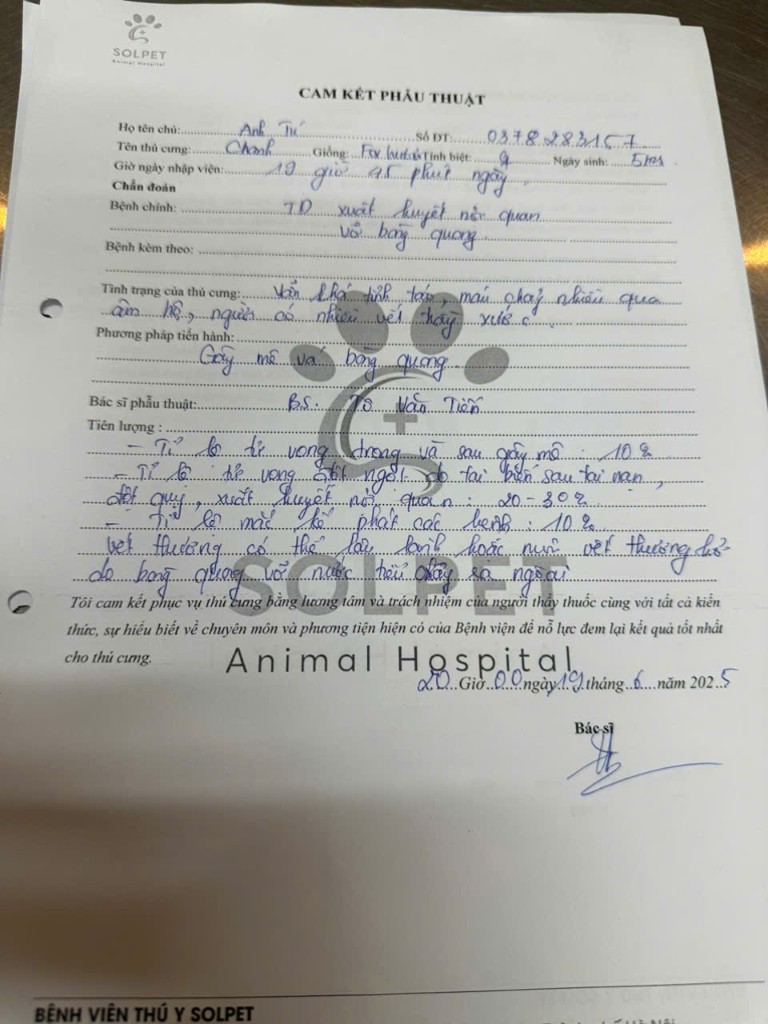 SOLPET
Animal Hospital
CAM KẾT PHẪU THUẬT
Họ tên chủ: Anh Tú Số ĐT: 0378283157
Tên thú cưng: Chanh Giống: Tính biệt: Ngày sinh:
Giờ ngày nhập viện: 19 giờ 45 phút ngày
Chẩn đoán
Bệnh chính: TD xuất huyết nội quan
vỡ bàng quang
Bệnh kèm theo:
Tình trạng của thú cưng: Vẫn khá tỉnh táo, máu chảy nhiều qua
âm hộ, người có nhiều vết trầy xước
Phương pháp tiến hành:
Gây mê vá bàng quang
Bác sĩ phẫu thuật: BS. Tô Văn Tiến
Tiên lượng :
- Tỉ lệ tử vong trong và sau gây mê : 10%
- Tỉ lệ tử vong đột ngột do tai biến sau tai nạn,
đột quỵ, xuất huyết nội quan : 20-30%
- Tỉ lệ mắc kế phát các bệnh : 10%
vết thương có thể lâu lành hoặc nứt vết thương hở
do bàng quang vỡ nước tiểu chảy ra ngoài
Tôi cam kết phục vụ thú cưng bằng lương tâm và trách nhiệm của người thầy thuốc cùng với tất cả kiến
thức, sự hiểu biết về chuyên môn và phương tiện hiện có của Bệnh viện để nỗ lực đem lại kết quả tốt nhất
cho thú cưng.
SOLPET
Animal Hospital
20 Giờ 00 ngày 19 tháng 6 năm 2025
Bác sĩ
BỆNH VIỆN THÚ Y SOLPET